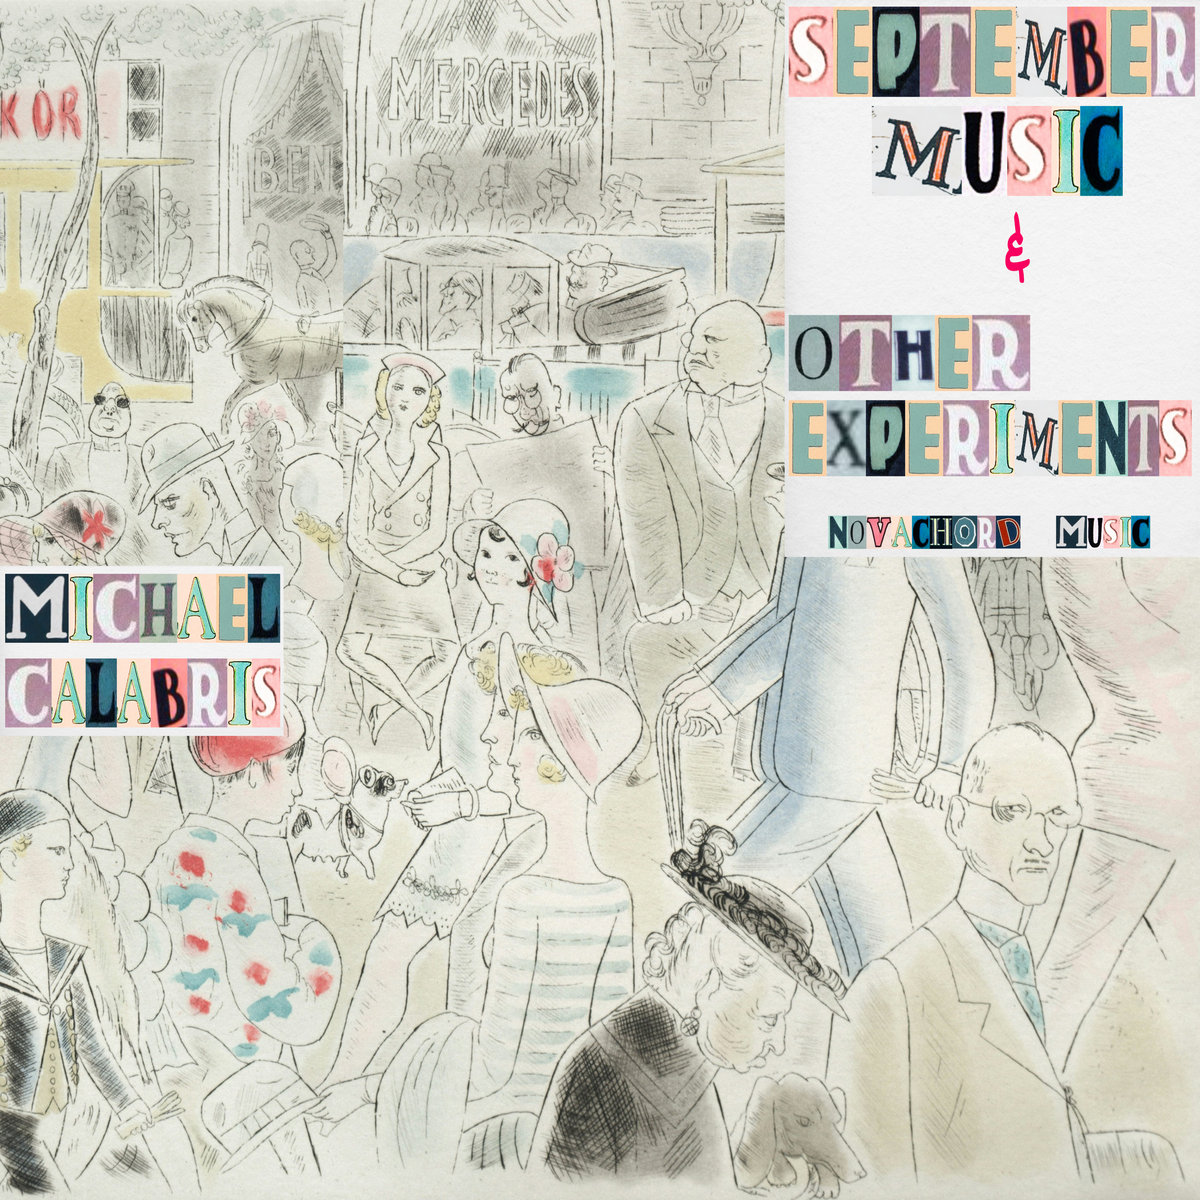 SEPTEMBER
MUSIC
&
OTHER
EXPERIMENTS
NOVACHORD MUSIC
MERCEDES
KÖR
BEN
MICHAEL
CALABRIS